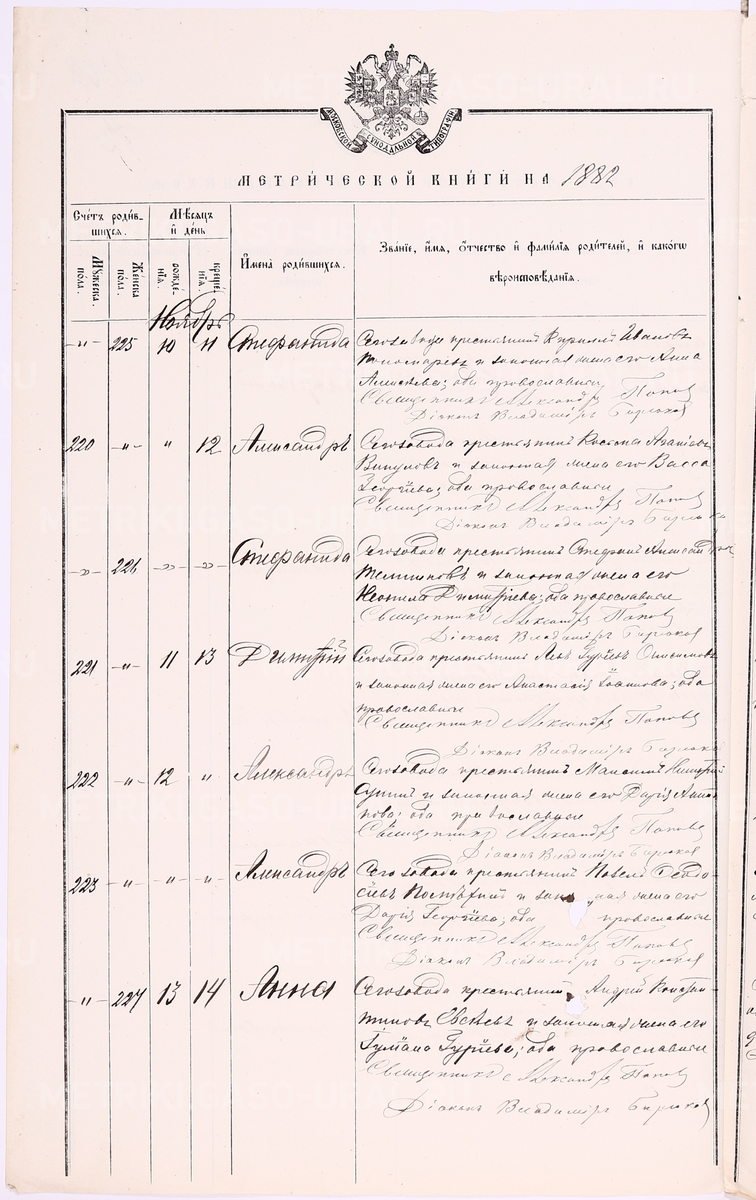 МОСКОВСКОЙ СѴНОДАЛЬНОЙ ТИПОГРАФІИ
МЕТРИ́ЧЕСКОЙ КНИ́ГИ НА 1882
Сче́тъ роди́в-
шихся.
Му́жеска
по́ла.
Же́нска
по́ла.
Мѣ́сяцъ
и҆ де́нь
рожде́-
нїѧ.
креще́-
нїѧ.
И҆мена̀ роди́вшихся.
Зва́нїе, и҆́мѧ, ѻ҆́тчество и҆ фами́лїѧ роди́телей, и҆ како́гѡ
вѣроисповѣ́данїѧ.
Ноябрь
„ 225 10 11 Стефанида
Сегозавода крестьянинъ Кирилъ Ивановъ
Пономаревъ и законная жена его Анна
Алексѣева; оба православныи
Священникъ Александръ Поповъ
Діаконъ Владиміръ Бирюковъ
220 „ „ 12 Александръ
Сегозавода крестьянинъ
Викуловъ и законная жена его Васса
Георгіева; оба православныи
Священникъ Александръ Поповъ
Діаконъ Владиміръ Бирюковъ
„ 226 „ „ Стефанида
Сегозавода крестьянинъ Стефанъ
и законная жена его
Неонила Димитріева; оба православныи
Священникъ Александръ Поповъ
Діаконъ Владиміръ Бирюковъ
221 „ 11 13 Димитрій
Сегозавода крестьянинъ Левъ Гурьевъ
и законная жена его Анастасія Іоаннова; оба
православныи
Священникъ Александръ Поповъ
Діаконъ Владиміръ Бирюковъ
222 „ 12 „ Александръ
Сегозавода крестьянинъ
и законная жена его Дарія
оба православныи
Священникъ Александръ Поповъ
Діаконъ Владиміръ Бирюковъ
223 „ „ „ Александръ
Сего завода крестьянинъ Павелъ
и законная жена его
Дарія Георгіева; оба православныи
Священникъ Александръ Поповъ
Діаконъ Владиміръ Бирюковъ
„ 227 13 14 Анна
Сегозавода крестьянинъ Андрей Констан-
тиновъ и законная жена его
Гурьева; оба православныи
Священникъ Александръ Поповъ
Діаконъ Владиміръ Бирюковъ